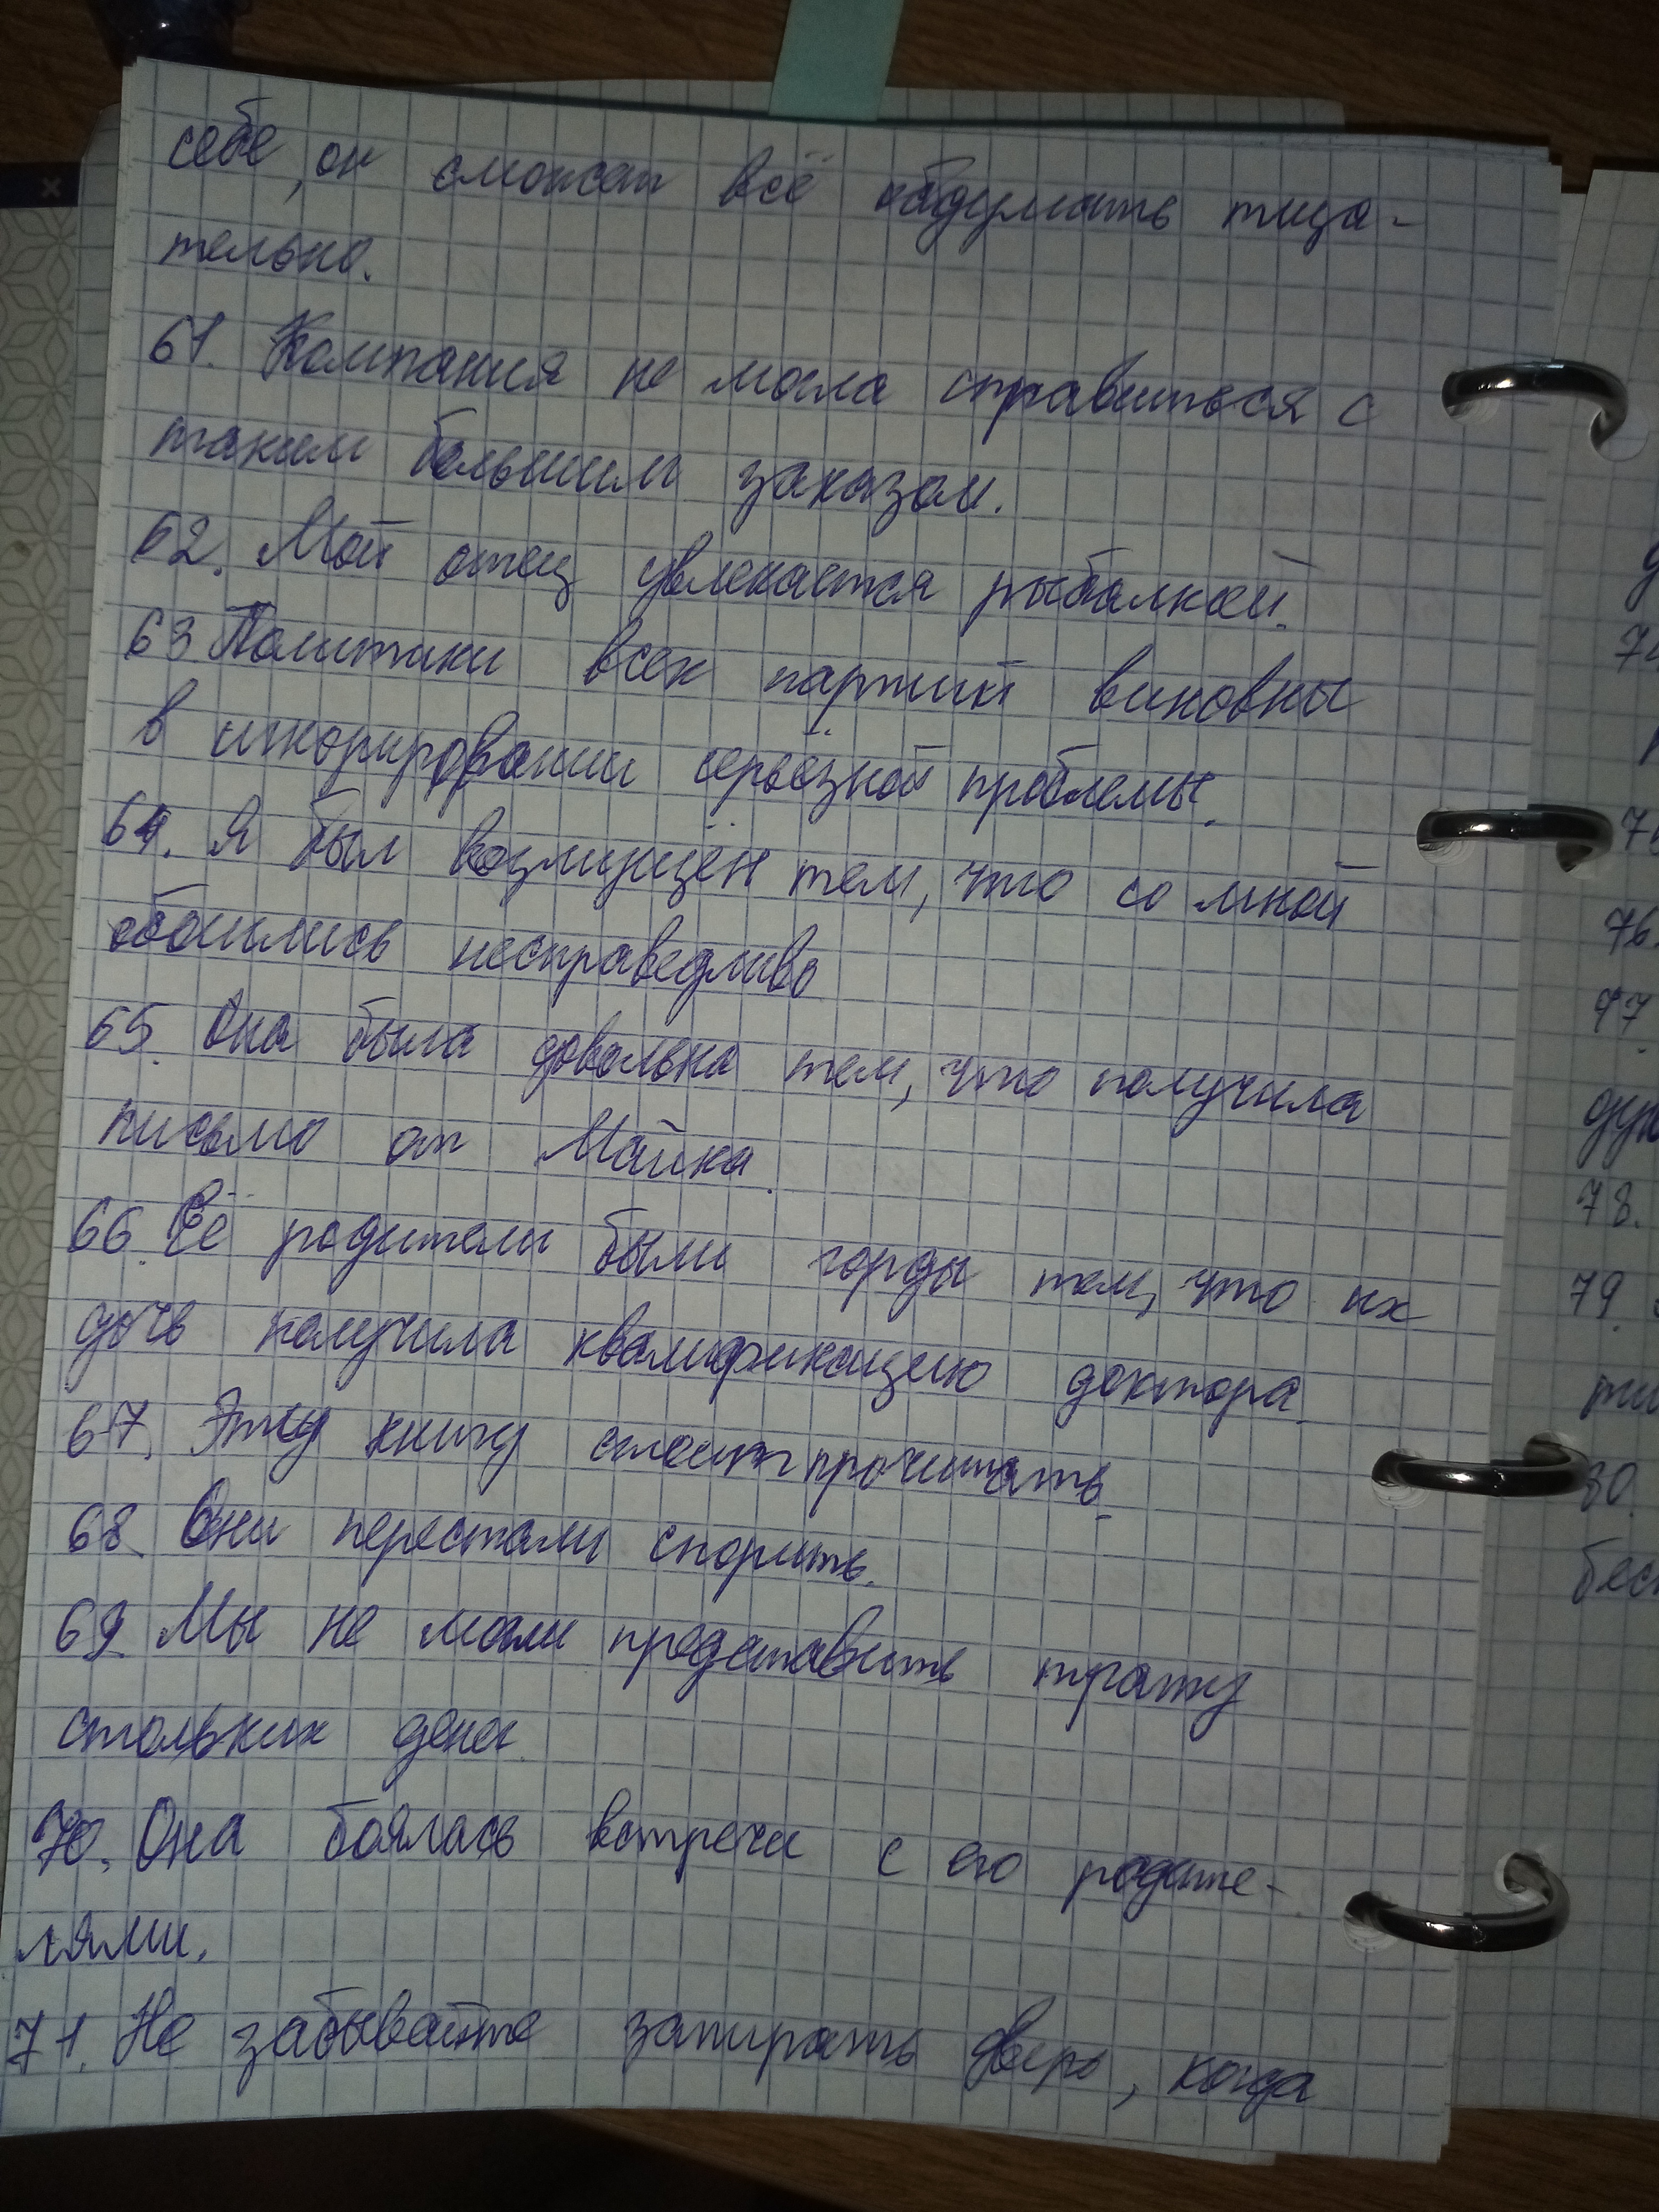 себе, он сможет всё обдумать тща-
тельно.
61. Компания не могла справиться с
таким большим заказом.
62. Мой отец увлекается рыбалкой.
63 Политики всех партий виновны
в игнорировании серьёзной проблемы.
64. Я был возмущён тем, что со мной
обошлись несправедливо
65. Она была довольна тем, что получила
письмо от Майка.
66. Её родители были горды тем, что их
дочь получила квалификацию доктора.
67. Эту книгу стоит прочитать.
68. Они перестали спорить.
69. Мы не могли представить трату
стольких денег.
70. Она боялась встречи с его родите-
лями.
71. Не забывайте запирать дверь, когда
74
76.
77
78.
79.
80.